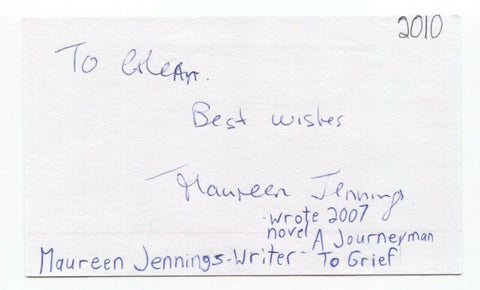 2010
To
Best wishes
Maureen Jennings
- wrote 2007
novel A Journeyman
Maureen Jennings - Writer - To Grief